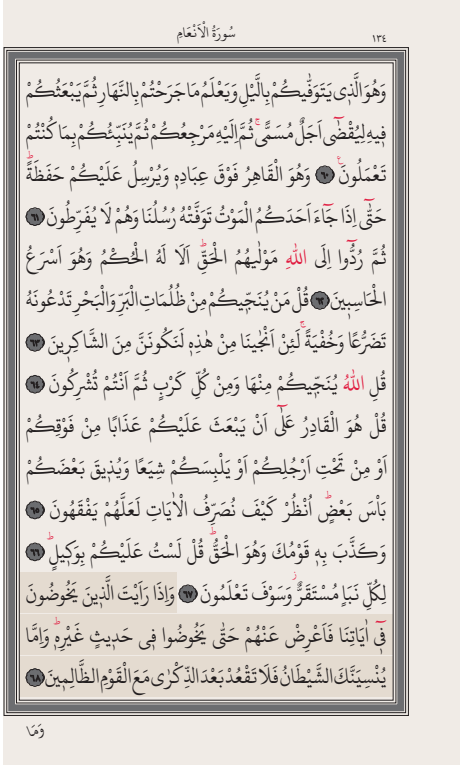 سُورَةُ الْاَنْعَامِ
١٣٤
وَهُوَ الَّذ۪ي يَتَوَفّٰيكُمْ بِالَّيْلِ وَيَعْلَمُ مَا جَرَحْتُمْ بِالنَّهَارِ ثُمَّ يَبْعَثُكُمْ
ف۪يهِ لِيُقْضٰٓى اَجَلٌ مُسَمًّىۚ ثُمَّ اِلَيْهِ مَرْجِعُكُمْ ثُمَّ يُنَبِّئُكُمْ بِمَا كُنْتُمْ
تَعْمَلُونَ۟ ﴿٦٠﴾ وَهُوَ الْقَاهِرُ فَوْقَ عِبَادِه۪ وَيُرْسِلُ عَلَيْكُمْ حَفَظَةًۜ
حَتّٰٓى اِذَا جَٓاءَ اَحَدَكُمُ الْمَوْتُ تَوَفَّتْهُ رُسُلُنَا وَهُمْ لَا يُفَرِّطُونَ ﴿٦١﴾
ثُمَّ رُدُّٓوا اِلَى اللّٰهِ مَوْلٰيهُمُ الْحَقِّۜ اَلَا لَهُ الْحُكْمُ وَهُوَ اَسْرَعُ
الْحَاسِب۪ينَ ﴿٦٢﴾ قُلْ مَنْ يُنَجّ۪يكُمْ مِنْ ظُلُمَاتِ الْبَرِّ وَالْبَحْرِ تَدْعُونَهُ
تَضَرُّعًا وَخُفْيَةًۚ لَئِنْ اَنْجٰينَا مِنْ هٰذِه۪ لَنَكُونَنَّ مِنَ الشَّاكِر۪ينَ ﴿٦٣﴾
قُلِ اللّٰهُ يُنَجّ۪يكُمْ مِنْهَا وَمِنْ كُلِّ كَرْبٍ ثُمَّ اَنْتُمْ تُشْرِكُونَ ﴿٦٤﴾
قُلْ هُوَ الْقَادِرُ عَلٰٓى اَنْ يَبْعَثَ عَلَيْكُمْ عَذَابًا مِنْ فَوْقِكُمْ
اَوْ مِنْ تَحْتِ اَرْجُلِكُمْ اَوْ يَلْبِسَكُمْ شِيَعًا وَيُذ۪يقَ بَعْضَكُمْ
بَاْسَ بَعْضٍۜ اُنْظُرْ كَيْفَ نُصَرِّفُ الْاٰيَاتِ لَعَلَّهُمْ يَفْقَهُونَ ﴿٦٥﴾
وَكَذَّبَ بِه۪ قَوْمُكَ وَهُوَ الْحَقُّۜ قُلْ لَسْتُ عَلَيْكُمْ بِوَك۪يلٍۜ ﴿٦٦﴾
لِكُلِّ نَبَأٍ مُسْتَقَرٌّۘ وَسَوْفَ تَعْلَمُونَ ﴿٦٧﴾ وَاِذَا رَاَيْتَ الَّذ۪ينَ يَخُوضُونَ
ف۪ٓي اٰيَاتِنَا فَاَعْرِضْ عَنْهُمْ حَتّٰى يَخُوضُوا ف۪ي حَد۪يثٍ غَيْرِه۪ۜ وَاِمَّا
يُنْسِيَنَّكَ الشَّيْطَانُ فَلَا تَقْعُدْ بَعْدَ الذِّكْرٰى مَعَ الْقَوْمِ الظَّالِم۪ينَ ﴿٦٨﴾
وَمَا